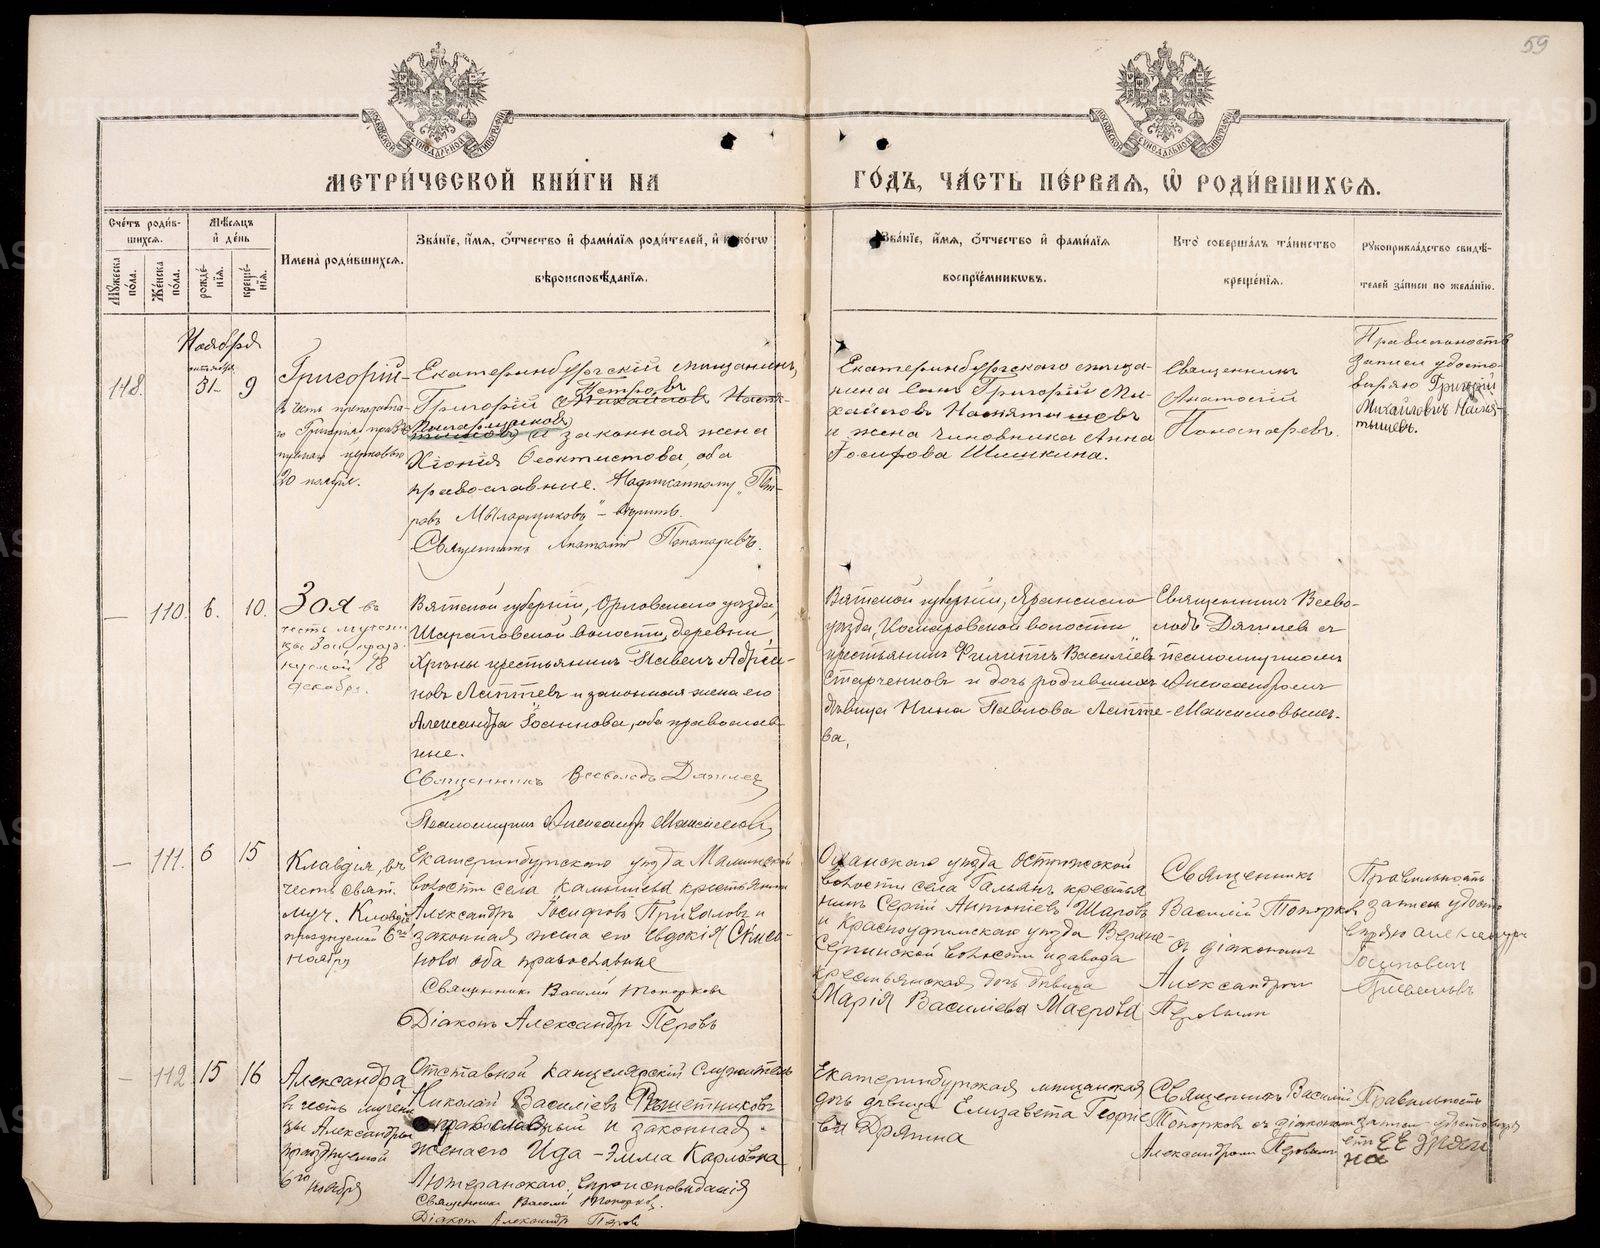 59
МЕТРИ́ЧЕСКОЙ КНИ́ГИ НА
ГО́ДЪ, ЧА́СТЬ ПЕ́РВАЯ, Ѡ҆ РОДИ́ВШИХСЯ.
Сче́тъ роди́в-
шихся.
Мѣ́сяцъ
и҆ де́нь
Му́жеска по́ла.
Же́нска по́ла.
рожде́-
нія.
креще́-
нія.
И҆мена̀ роди́вшихся.
Зва́нїе, и҆́мя, ѻ҆́тчество и҆ фами́лїя роди́телей, и҆ како́гѡ
вѣроисповѣ́данїя.
Зва́нїе, и҆́мя, ѻ҆́тчество и҆ фами́лїя
воспрїе́мникѡвъ.
Кто̀ соверша́лъ та́инство
креще́нїя.
Рукоприкла́дство свидѣ́-
телей за́писи по жела́нїю.
Ноября
118.
31
9
Григорій
въ честь преподобна-
го Григорія, праздн.
церковью
20 ноября.
Екатеринбургскій мѣщанинъ
Петровъ
Григорій Михайловъ
Мыларщиковъ
и законная жена
Хіонія Ѳеоктистова, оба
православные. Надписанному „Пет-
ровъ Мыларщиковъ" – вѣрить.
Священникъ Анатолій Пономаревъ.
Екатеринбургскаго мѣща-
нина сынъ Григорій Ми-
хайловъ
и жена чиновника Анна
Іосифова Шишкина.
Священникъ
Анатолій
Пономаревъ.
Правильность
записи удосто-
вѣряю Григорій
Михайловичъ
—
110.
6.
10.
Зоя въ
честь мучени-
цы Зои
18
декабря.
Вятской губерніи, Орловскаго уѣзда,
Шараповской волости, деревни
крестьянинъ Павелъ Адріа-
новъ Лаптевъ и законная жена его
Александра Іоаннова, оба православ-
ные.
Священникъ Всеволодъ Дягилев
Псаломщикъ Александръ
Вятской губерніи, Яранскаго
уѣзда, Комаровской волости
крестьянинъ Филиппъ Василіевъ
Старченковъ и дочь родившихъ
дѣвица Нина Павлова Лапте-
ва.
Священникъ Всево-
лодъ Дягилев съ
псаломщикомъ
Александромъ
—
111.
6
15
Клавдія, въ
честь свят.
муч. Клавдіи
празднуемой 6го
ноября
Екатеринбургскаго уѣзда Маминской
волости села Камышева крестьянинъ
Александръ Іосифовъ Приваловъ и
законная жена его Евдокія Симео-
нова оба православные
Священникъ Василій Топорковъ
Діаконъ Александръ Перовъ
Оханскаго уѣзда Острожской
волости села крестья
нинъ Сергій Антоніевъ Шаровъ
и Красноуфимскаго уѣзда Верхне-
Сергинской волости и завода
крестьянская дочь дѣвица
Марія Василіева Маерова
Священникъ
Василій Топорков
съ діакономъ
Александромъ
Перовымъ
Правильность
записи удосто
вѣряю Александръ
Іосиповичъ
—
112
15
16
Александра
въ честь мучени
цы Александры
празднуемой
6го ноября
Отставной канцелярскій служитель
Николай Василіевъ Рѣшетниковъ
православный и законная
жена его Ида – Эмма Карловна
Лютеранскаго вѣроисповѣданія
Священникъ Василій Топорков.
Діаконъ Александръ Перовъ
Екатеринбургская мѣщанская
дочь дѣвица Елизавета Георгіе
ва Дрягина
Священникъ Василій
Топорков съ діакономъ
Александромъ Перовымъ
Правильность
записи удостовѣря